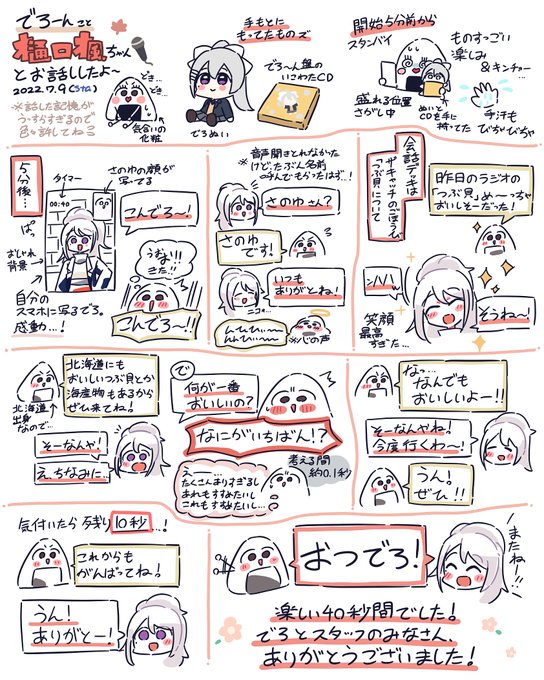 でろーんこと
樋口楓ちゃん
とお話ししたよ〜
2022.7.9 (Sta)
※話した記憶が
うっすらすぎるので
色々許してね
どき…
どき…
気合いの
化粧
手もとに
もってたものズ
でろーん盤の
いさわたCD
でろぬい
開始5分前から
スタンバイ
ものすっごい
楽しみ
&キンチョー…
盛れる位置
さがし中
ぬいと
CDを手に
持ってた
手汗も
びちゃびちゃ
5分後…
タイマー
00:40
さのゆの顔が
写ってる
ぱっ
おしゃれ
背景→
自分の
スマホに写るでろ。
感動…!
こんでろ〜!
うおお!!!
きた!!
こんでろ〜!!
音声聞きとれなかった
けど、たぶん名前
呼んでもらったはず…!
さのゆさん?
さのゆ
です!
いつも
ありがとね!
ニコォ…
んひぃひぃ〜〜
んんひぃ〜〜
※心の声
会話デッキは
ザキャッチのごほうび
「つぶ貝」について
昨日のラジオの
「つぶ貝」め〜っちゃ
おいしそーだった!
そうね〜!
笑顔
最高
すぎた…
北海道にも
おいしいつぶ貝とか
海産物もあるから
ぜひ来てね!
北海道
出身
なので…
そーなんや!
え、ちなみに…
で
何が一番
おいしいの?
なにがいちばん!?
えー…
たくさんありすぎるし
あれもすすめたいし
これもすすめたいし…
考える間
約0.1秒
なっ…
なんでも
おいしいよー!!
そーなんやね!
今度行くわ〜!
うん!
ぜひ!!
気付いたら残り10秒…!
これからも
がんばってね!
うん!
ありがとー!
おつでろ!
またね!!
楽しい40秒間でした!
でろとスタッフのみなさん、
ありがとうございました!